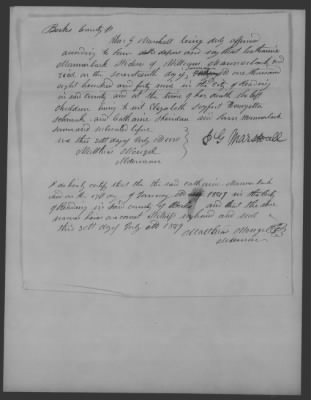 Berks County ss
Tho G Marshall being duly affirmed
according to law doth depose and say that Catharine
Mannerback Widow of William Mannerback
died on the seventeenth day of January one thousand
eight hundred and forty nine in the City of Reading
in said County and at the time of her death she left
children living to wit Elizabeth Seyfert Henrietta
Schrack and Catharine Sheridan and Sarah Mannerback
sworn and subscribed before
me this 30th day of July 1849
Matthias Mengel
Alderman
T G Marshall
I do hereby certify that the said Catharine Mannerback
died on the 17th day of January 1849 in the City
of Reading in said County of Berks and that the above
named have
hand and seal
this 30th day of July AD 1849
Matthias Mengel
Alderman